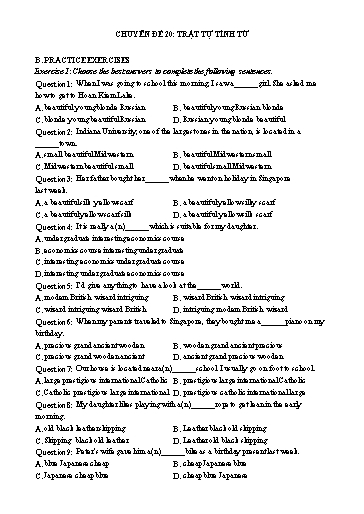 CHUYÊN ĐỀ 20: TRẬT TỰ TÍNH TỪ
B. PRACTICE EXERCISES
Exercise 1: Choose the best answers to complete the following sentences.
Question 1: When I was going to school this morning, I saw a______ girl. She asked me
how to get to Hoan Kiem Lake.
A. beautiful young blonde Russian B. beautiful young Russian blonde
C. blonde young beautiful Russian D. Russian young blonde beautiful
Question 2: Indiana University, one of the largest ones in the nation, is located in a
______town.
A. small beautiful Midwestern B. beautiful Midwestern small
C. Midwestern beautiful small D. beautiful small Midwestern
Question 3: Her father bought her______when he went on holiday in Singapore
last week.
A. a beautiful silk yellow scarf B. a beautiful yellow silky scarf
C. a beautiful yellow scarf silk D. a beautiful yellow silk scarf
Question 4: It is really a(n)______which is suitable for my daughter.
A. undergraduate interesting economics course
B. economics course interesting undergraduate
C. interesting economics undergraduate course
D. interesting undergraduate economics course
Question 5: I'd give anything to have a look at the______world.
A. modern British wizard intriguing B. wizard British wizard intriguing
C. wizard intriguing wizard British D. intriguing modern British wizard
Question 6: When my parents traveled to Singapore, they bought me a______piano on my
birthday.
A. precious grand ancient wooden B. wooden grand ancient precious
C. precious grand wooden ancient D. ancient grand precious wooden
Question 7: Our house is located near a(n)______school. I usually go on foot to school.
A. large prestigious international Catholic B. prestigious large international Catholic
C. Catholic prestigious large international D. prestigious catholic international large
Question 8: My daughter likes playing with a(n)______rope to get lean in the early
morning.
A. old black leather skipping B. Leather black old skipping
C. Skipping black old leather D. Leather old black skipping
Question 9: Peter's wife gave him a(n)______bike as a birthday present last week.
A. blue Japanese cheap B. cheap Japanese blue
C. Japanese cheap blue D. cheap blue Japanese